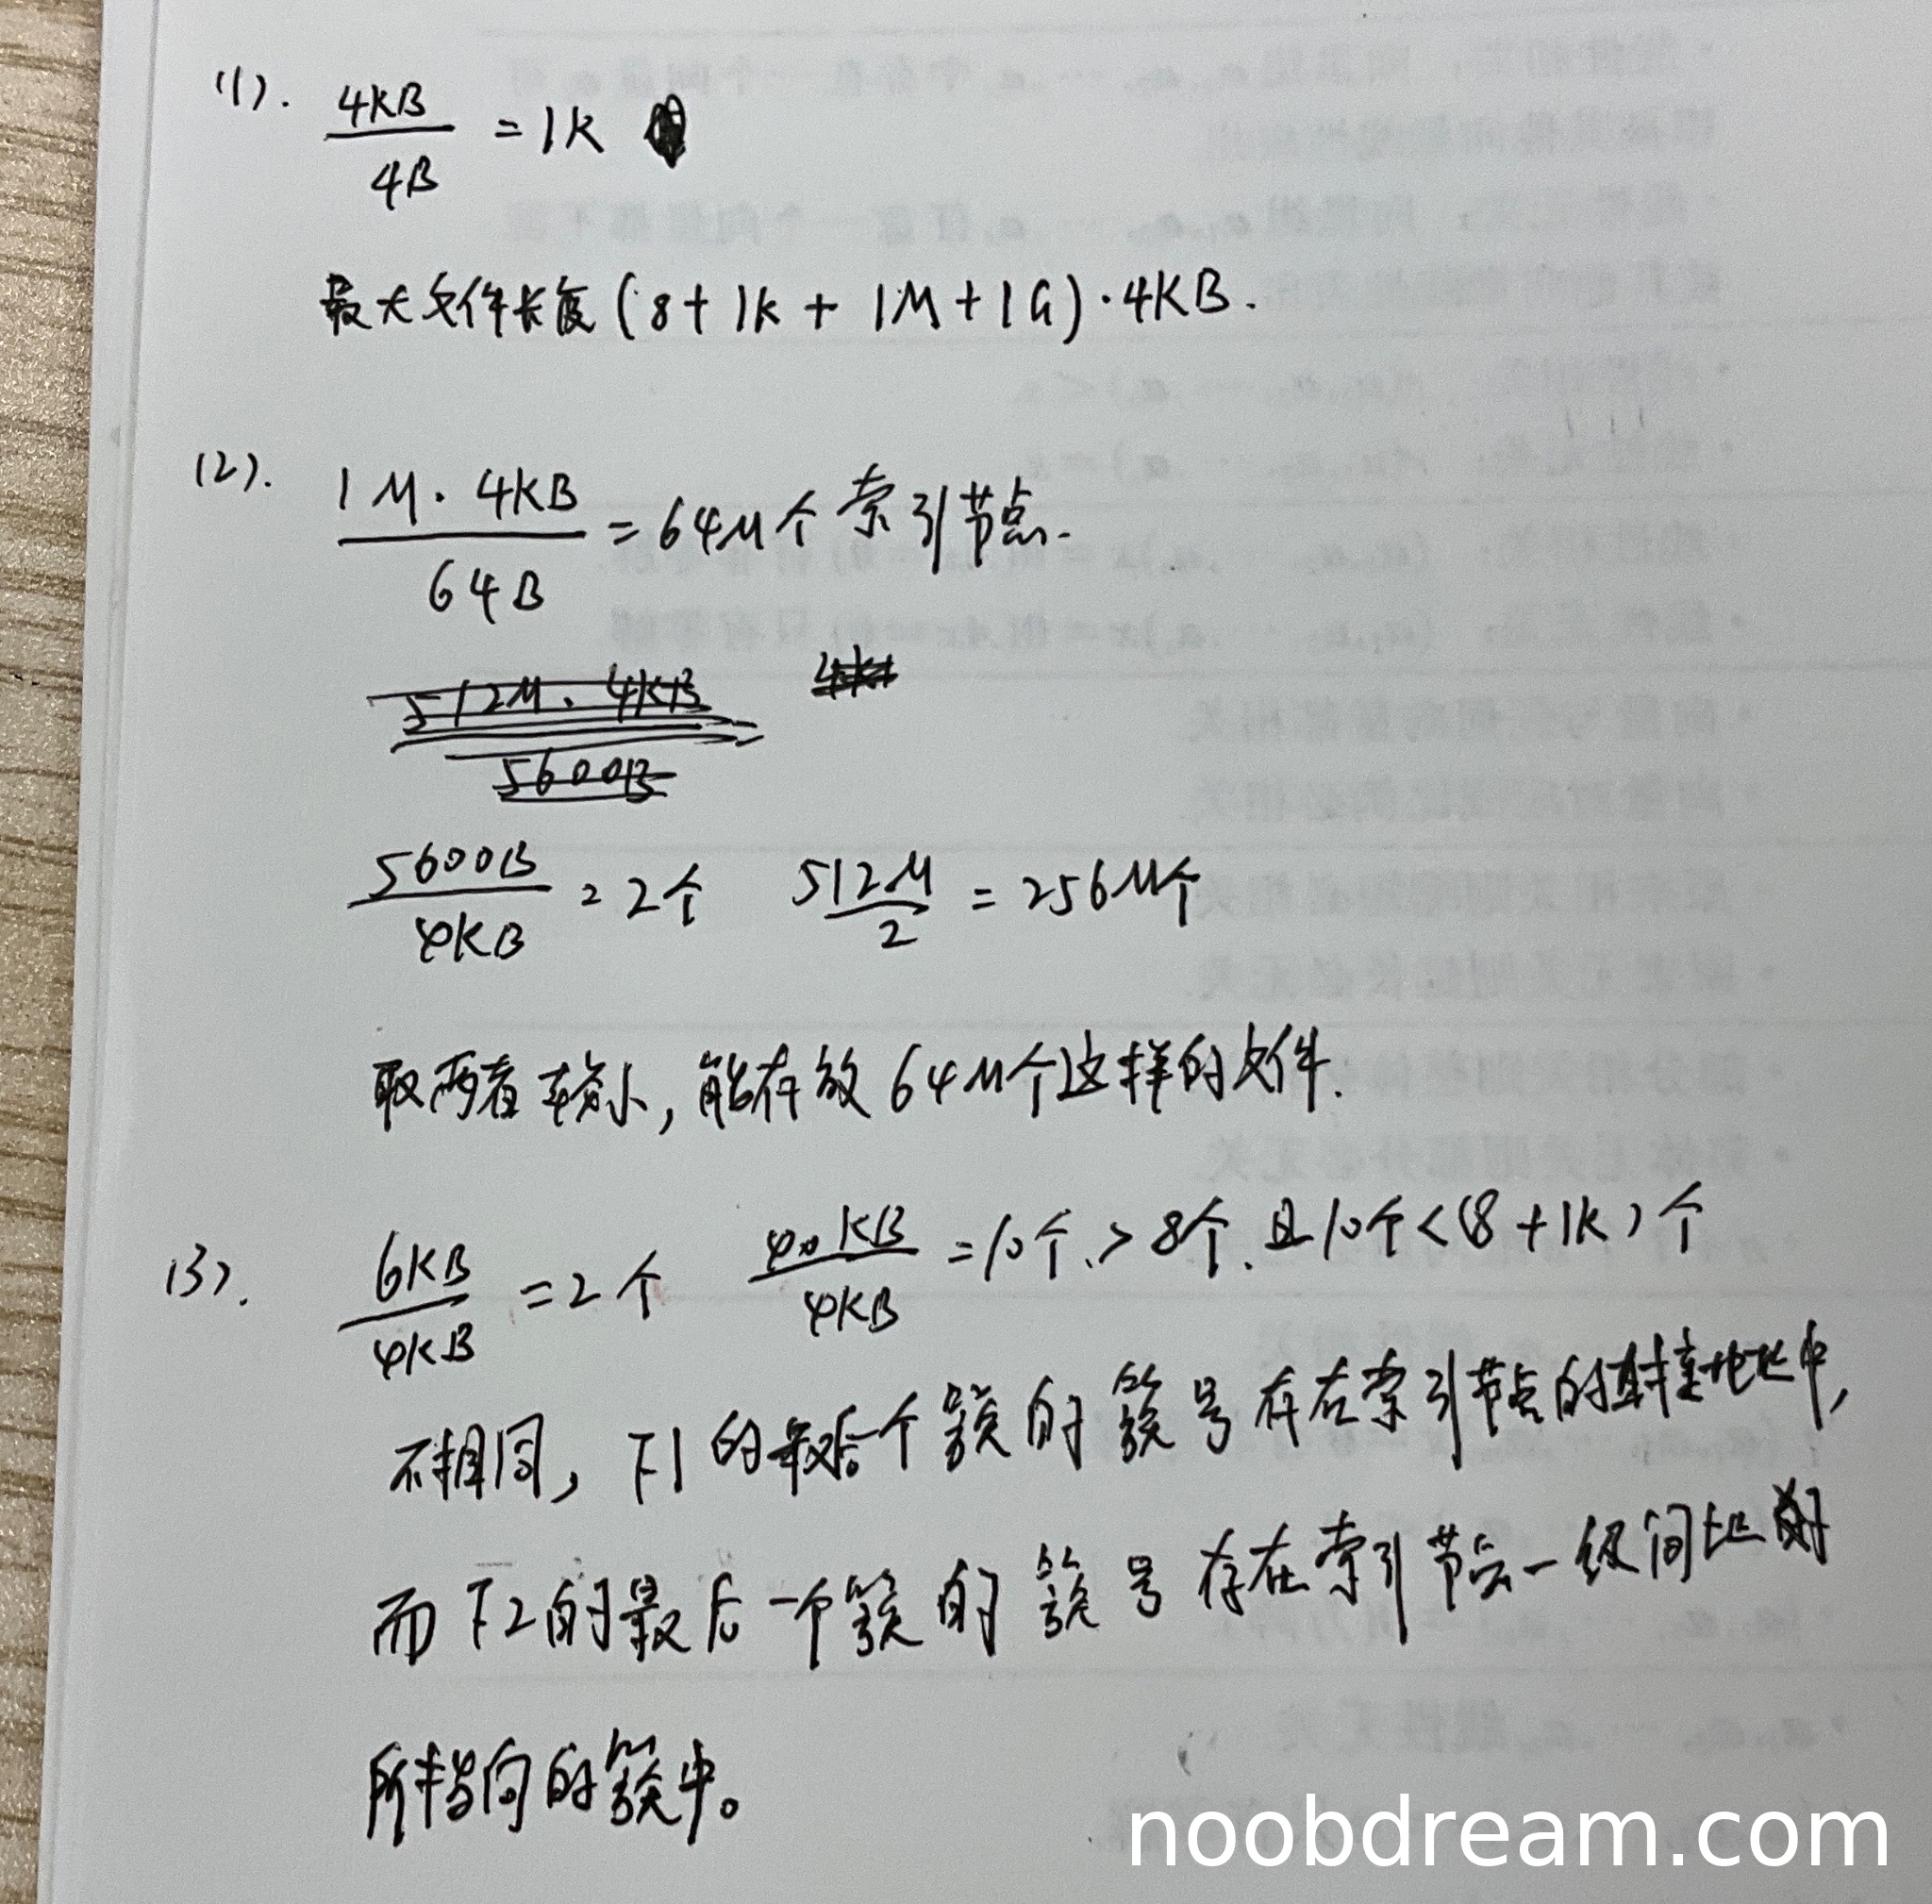 (1). 4KB / 4B = 1K
最大文件长度 (8 + 1K + 1M + 1G) · 4KB.
(2). 1M · 4KB / 64B = 64M个 索引节点.
512M · 4KB / 5600B
5600B / 4KB = 2个 512M / 2 = 256M个
取两者较小, 能存放 64M个这样的文件.
(3). 6KB / 4KB = 2个 40KB / 4KB = 10个 > 8个. 且10个 < (8 + 1K) 个
不相同, F1 的最后一个簇的簇号存在索引节点的直接地址中,
而 F2的最后一个簇的簇号存在索引节点一级间址
所指向的簇中。
noobdream.com